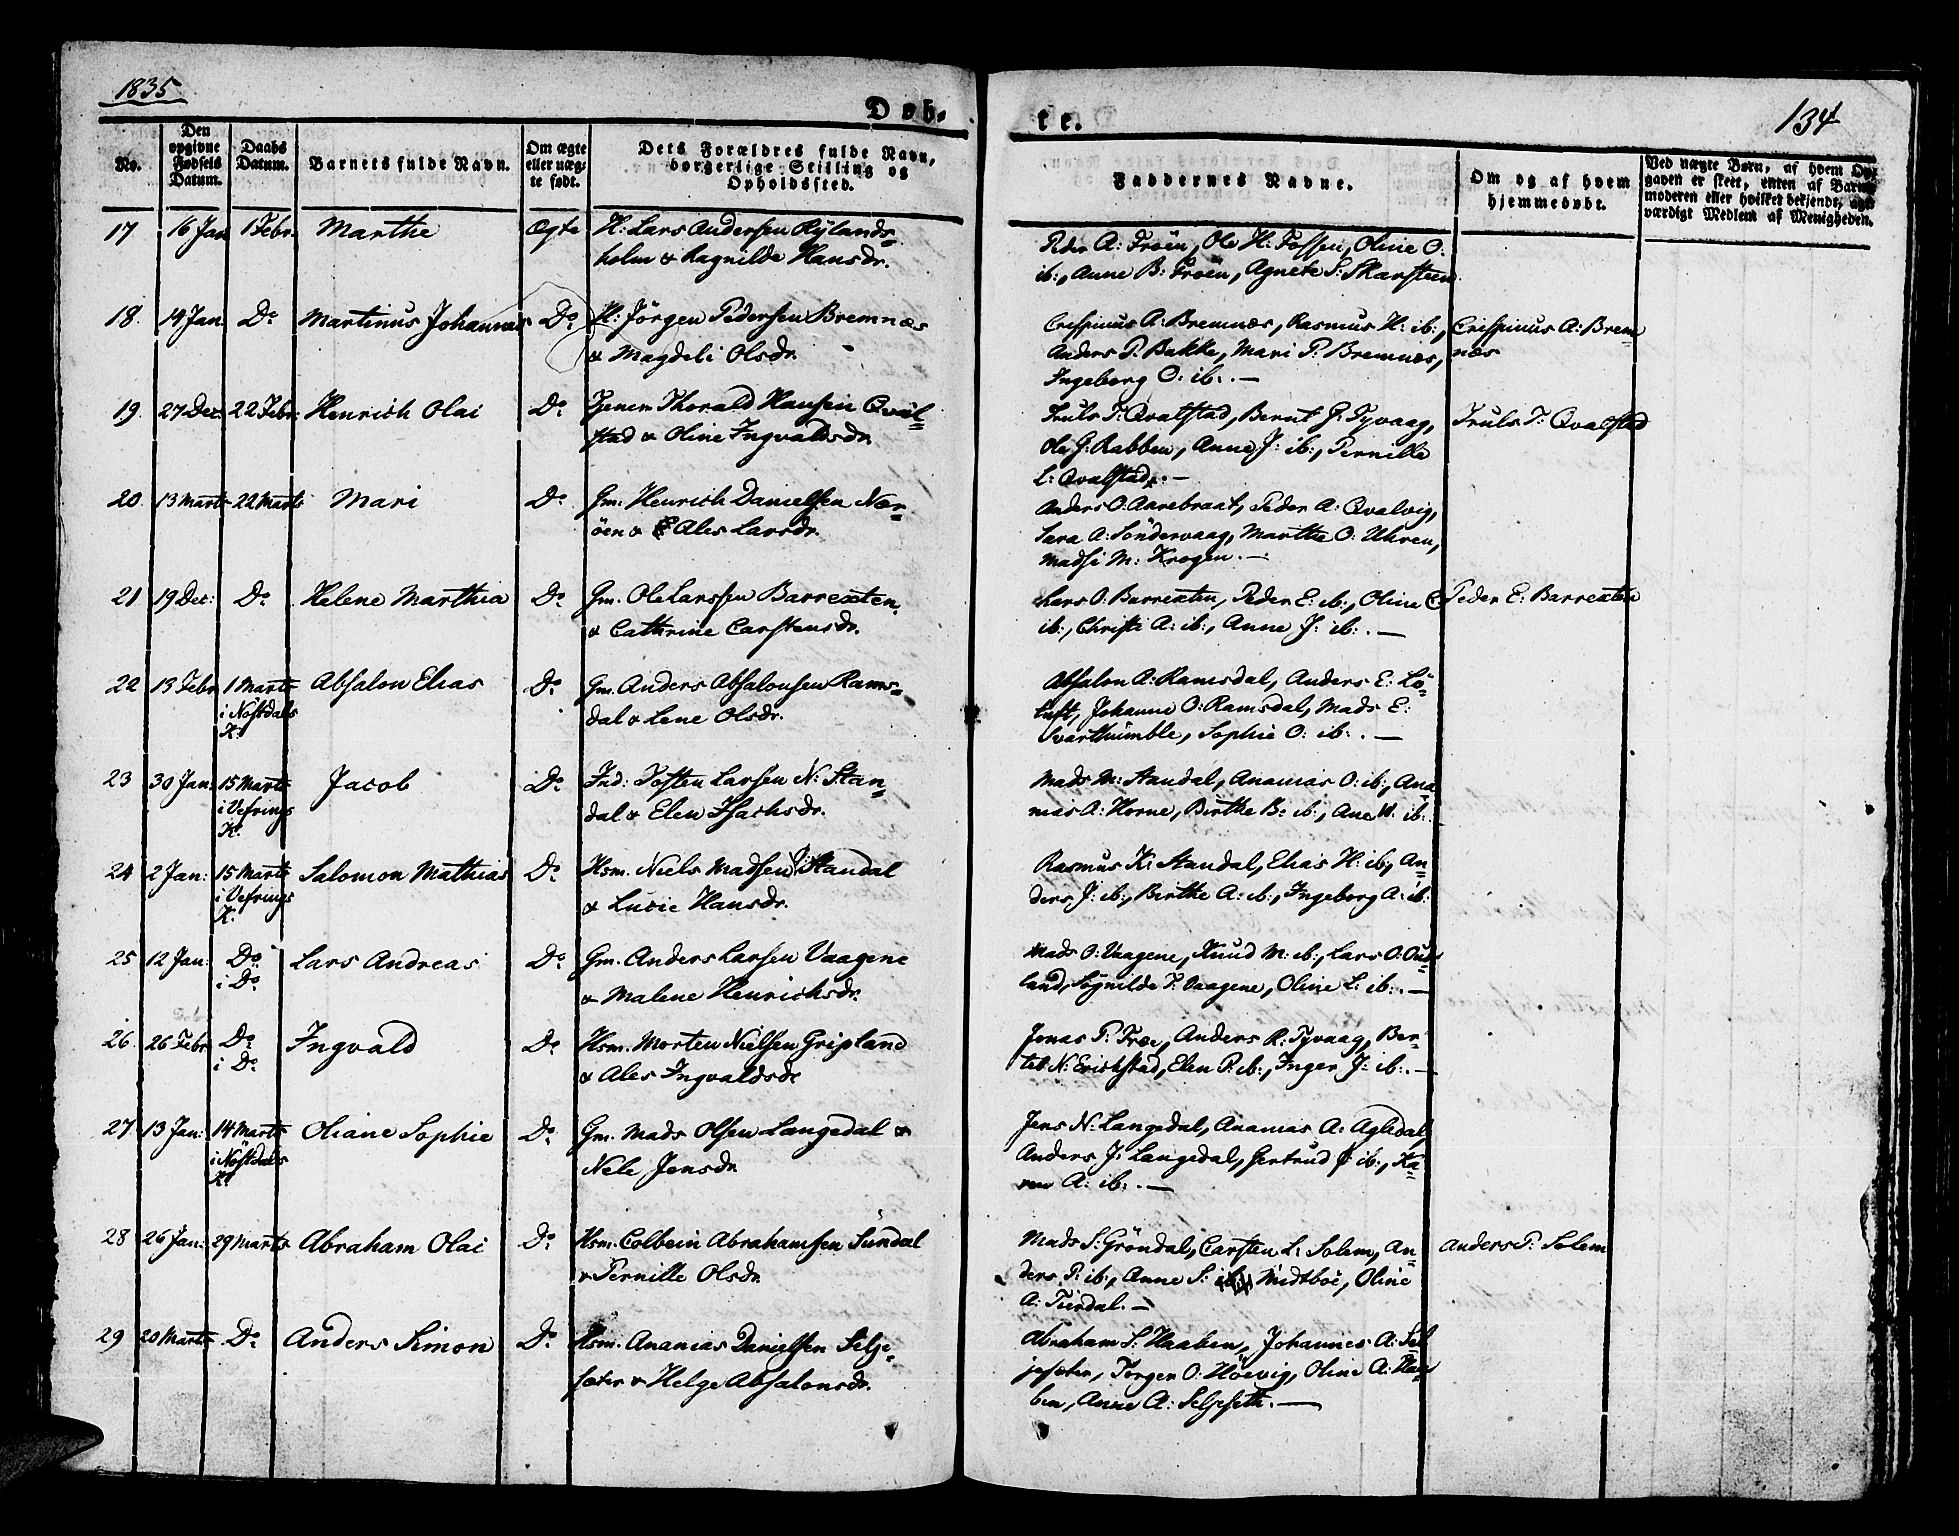 1835
Døb-
te.
134
No.
Den opgivne Fødsels Datum.
Daabs Datum.
Barnets fulde Navn.
Om ægte eller uægte født.
Dets Forældres fulde Navn, borgerlige Stilling og Opholdssted.
Faddernes Navne.
Om og af hvem hjemmedøbt.
Ved uægte Børn, af hvem Opgaven er skeet, enten af Barnemoderen eller hvilket bekjendt, agtværdigt Medlem af Menigheden.
17 16 Jan 1 Febr. Marthe Ægte H: Lars Andersen Rylands-
holm & Ragnilde Hansdr.
Peder A: Froën, Ole H: Fossen, Oline O:
ib:, Anne B: Froën, Agnete S: Skarsteen
18. 14 Jan. Do Martinus Johannes Do H: Jörgen Pedersen Bremnæs
& Magdeli Olsdr.
Crispinus A: Bremnæs, Rasmus H: ib:,
Anders P: Bakke, Mari P: Bremnæs,
Ingeborg O: ib:. —
Crispinus A: Brem-
næs
19. 27 Dec: 22 Febr: Henrich Olai Do Tjenem Thorald Hansen Qval-
stad & Oline Ingvaldsdr.
Truls T: Qvalstad, Bernt G: Tyvaag,
Ole G: Rabben, Anne J: ib:, Pernille
L: Qvalstad. —
Truls T: Qvalstad
20. 13 Marts 22 Marts Mari Do Gm. Henrich Danielsen Nær-
öen & Ales Larsdr.
Anders O: Aarebraat, Peder A: Qvalvig,
Sara A: Söndervaag, Marthe O: Uhren,
Madsi M: Krogen. —
21 19 Dec: Do Helene Marthia Do Gm. Ole Larssen Barrexten
& Cathrine Carstensdr.
Lars O: Barrexten, Peder E: ib:, Oline C:
ib:, Christi A: ib:, Anne J: ib:. —
Peder E: Barrexten
22 13 Febr 1 Marts
i Nöstdals
K:
Absalon Elias Do Gm. Anders Absalonsen Rams-
dal & Lene Olsdr.
Absalon A: Ramsdal, Anders E: Lö-
tuft, Johanne O: Ramsdal, Mads E:
Svarthumble, Sophie O: ib:. —
23 30 Jan: 15 Marts
i Vefrings
K:
Jacob Do Ind: Tosten Larsen N: Stan-
dal & Elen Isachsdr.
Mads M: Standal, Ananias O: ib:, Ana-
nias A: Horne, Birthe B: ib:, Ane M: ib:
24 2 Jan: 15 Marts
i Vefrings
K:
Salomon Mathias Do Hsm. Niels Madsen Standal
& Lucie Hansdr.
Rasmus K: Standal, Elias H: ib:, An-
ders J: ib:, Birthe A: ib:, Ingeborg A: ib:
25 12 Jan: Do
i Do
Lars Andreas Do Gm. Anders Larsen Vaagene
& Malene Henrichsdr.
Mads O: Vaagene, Knud M: ib:, Lars O: Ous-
land, Sögnilde T: Vaagene, Oline L: ib:. —
26. 26 Febr Do
i Do
Ingvald Do Hsm. Morten Nielsen Gripland
& Ales Ingvaldsdr
Jonas P: Troe, Anders R: Tyvaag, Ber-
tel N: Erichstad, Elen P: ib:, Inger J: ib:. —
27 13 Jan: 14 Marts
i Nöstdals
K:
Oliane Sophie Do Gm. Mads Olsen Langedal &
Nele Jensdr.
Jens N: Langedal, Ananias A: Agledal,
Anders J: Langedal, Gertrud J: ib:, Ka-
ren A: ib:. —
28 26 Jan: 29 Marts Abraham Olai Do Hsm. Colbein Abrahamsen Sundal
& Pernille Olsdr
Mads S: Gröndal, Carsten L: Solem, An-
ders P: ib:, Anne S: Midtboe, Oline
A: Tierdal. —
Anders P: Solem
29 20 Marts Do Anders Simon Do Hsm. Ananias Danielsen Selje-
sæter & Helge Absalonsdr.
Abraham S: Haaben, Johannes A: Sel-
jesæter, Jörgen O: Höevig, Oline A: Haa-
ben, Anne A: Seljeseth. —